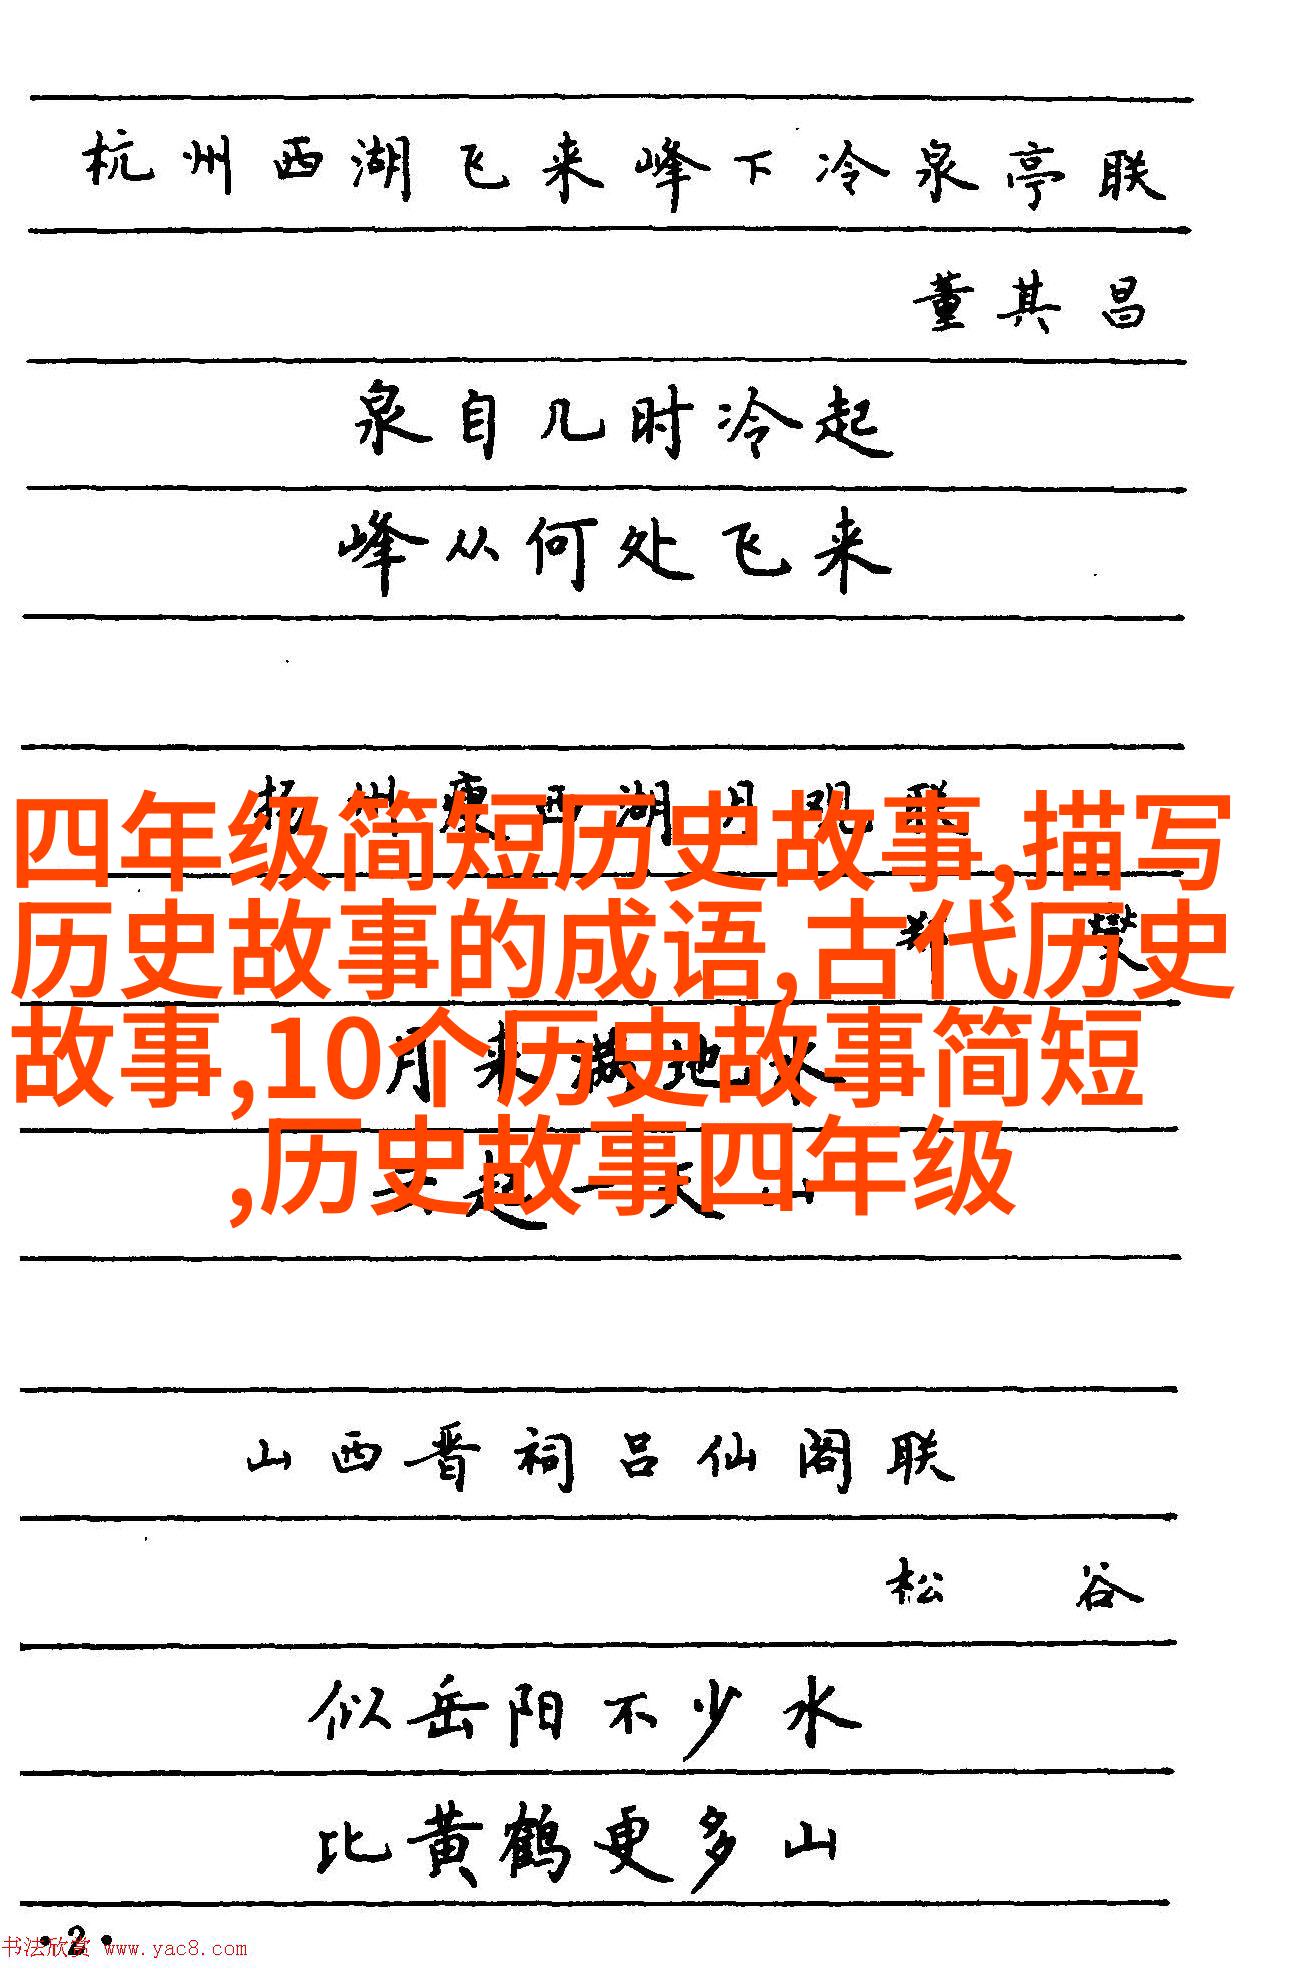 杭州西湖飞来峰下冷泉亭联
董其昌
泉自几时冷起
峰从何处飞来
扬州瘦西湖月观联
四年级简短历史故事,描写
郑燮
历史故事的成语,古代历史
月来满地水
故事,10个历史故事简短
云起一天山
,历史故事四年级
山西晋祠吕仙阁联
松谷
似岳阳不少水
比黄鹤更多山
·2·
书法欣赏 www.yac8.com